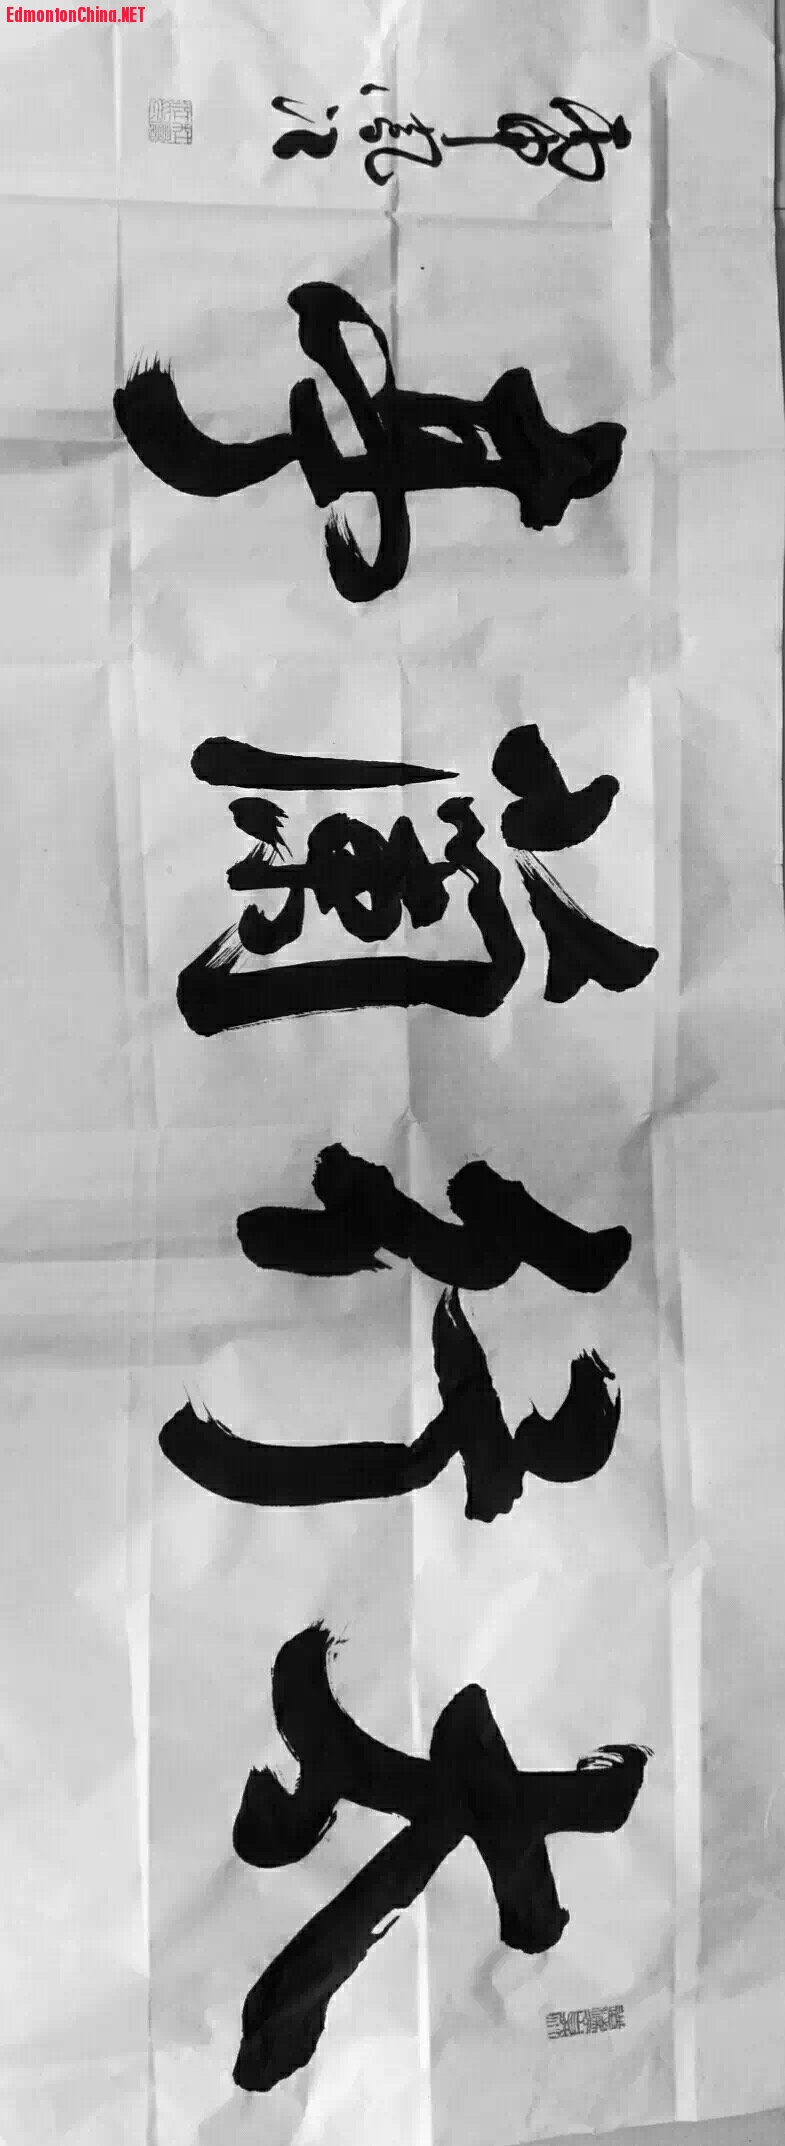 EdmontonChina.NET
太行蘭亭